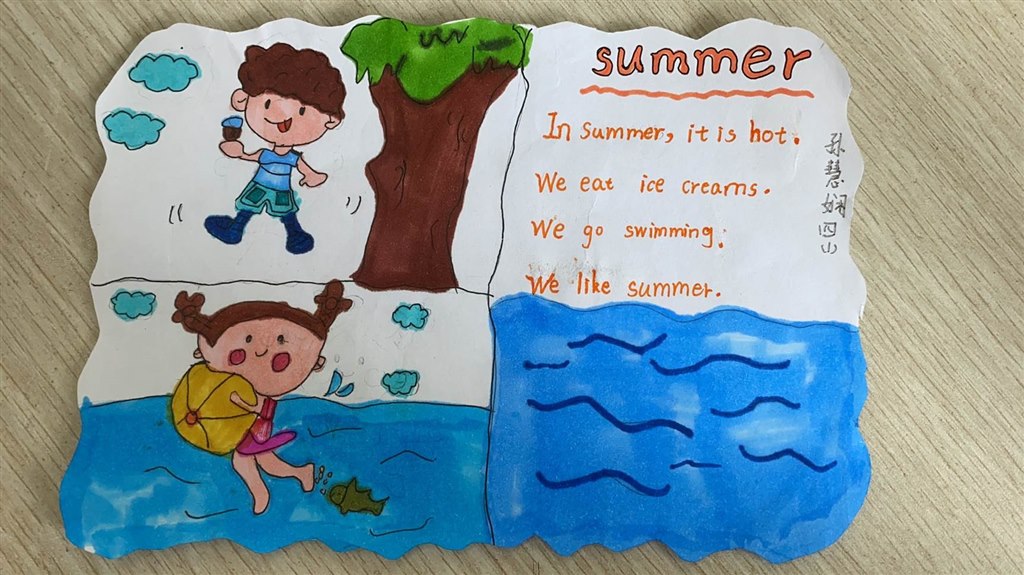 summer
In summer, it is hot.
We eat ice creams.
We go swimming.
We like summer.
孙慧娴四山